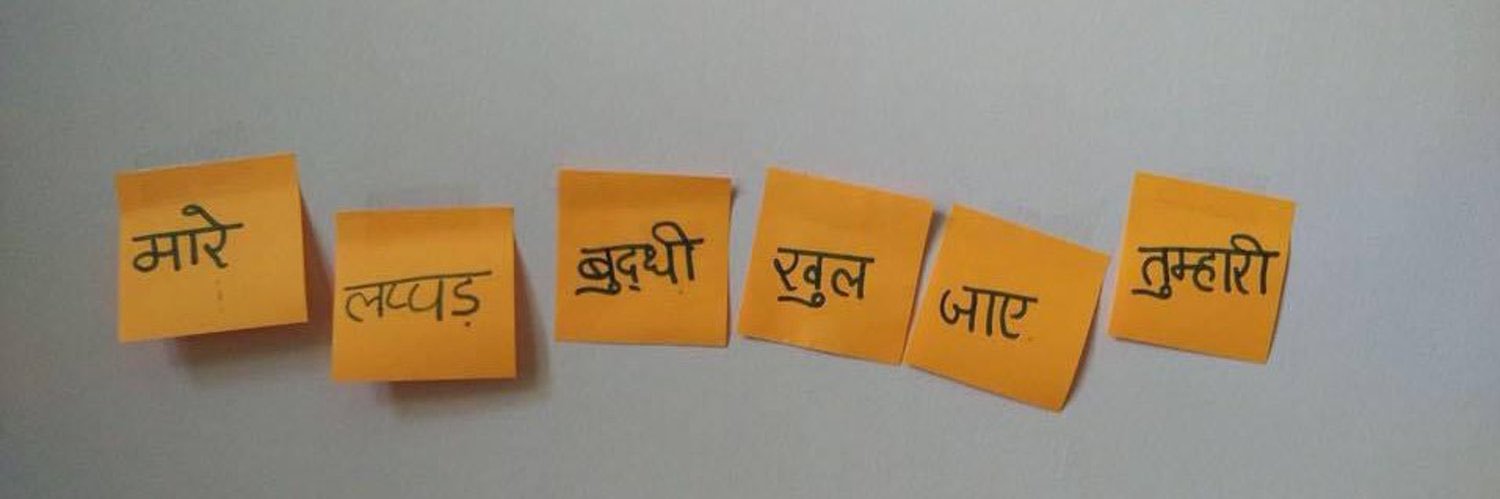 मारे लप्पड़ बुद्धी खुल जाए तुम्हारी